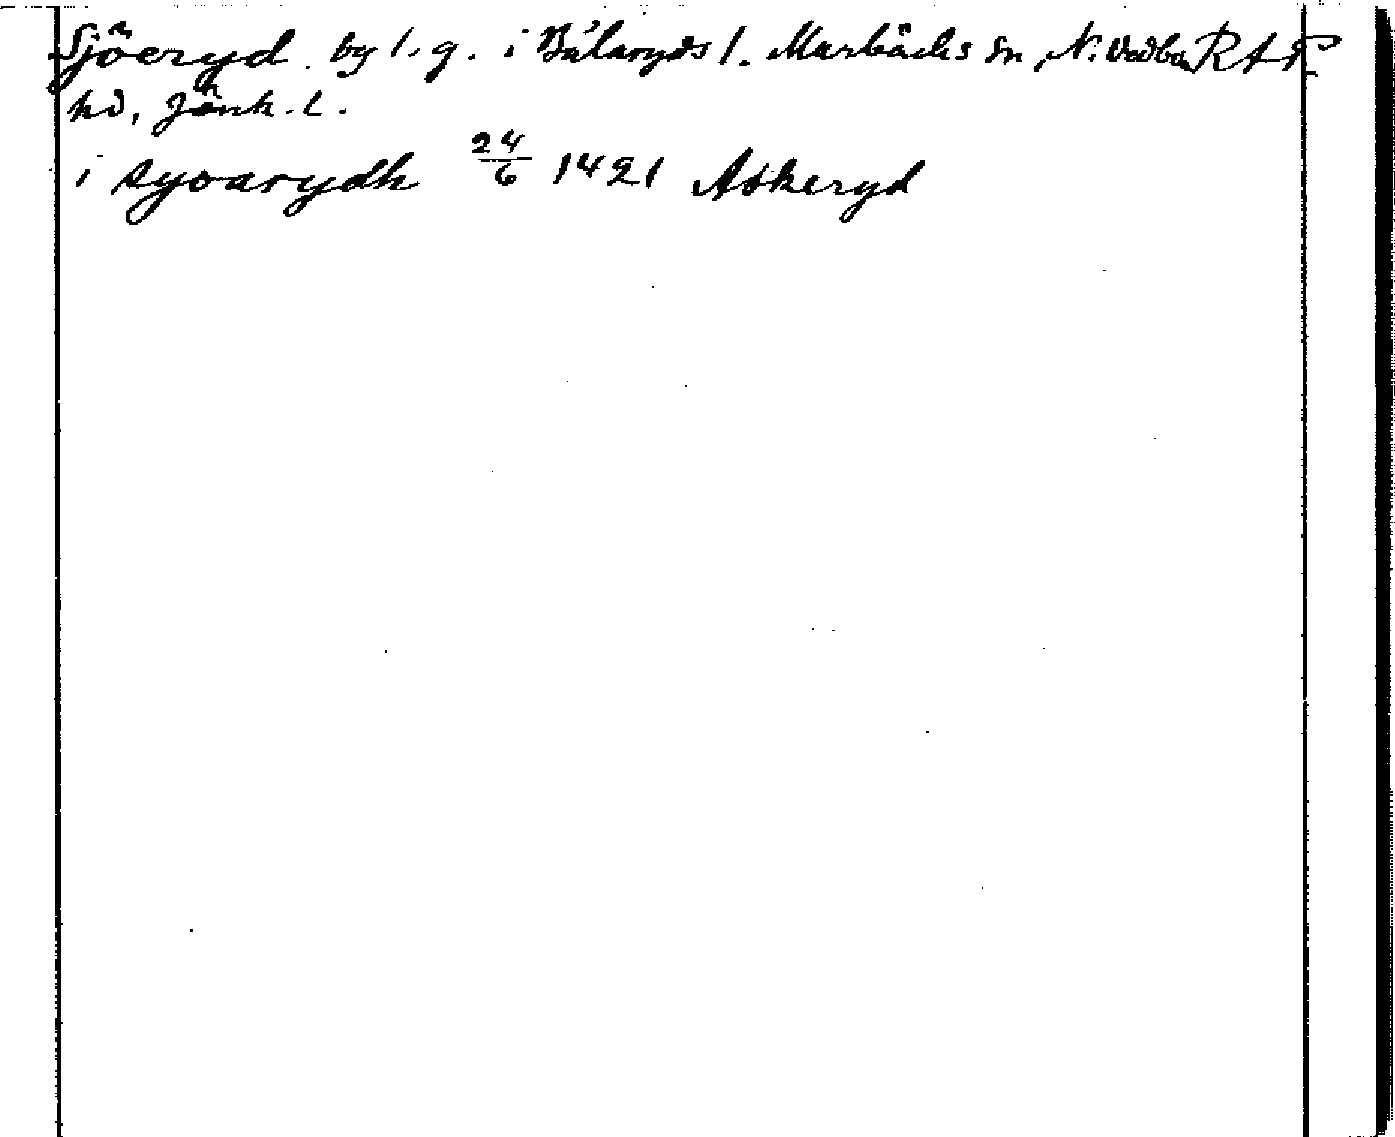 Sjöeryd by l. g. i Bälaryds l. Marbäcks sn, N. Vedbo RAP
hd, Jönk. l.
i syoarydh 24/6 1421 Askeryd